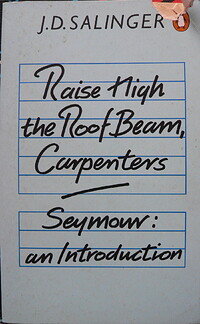 J.D. SALINGER
Raise High
the Roof Beam,
Carpenters
Seymour:
an Introduction